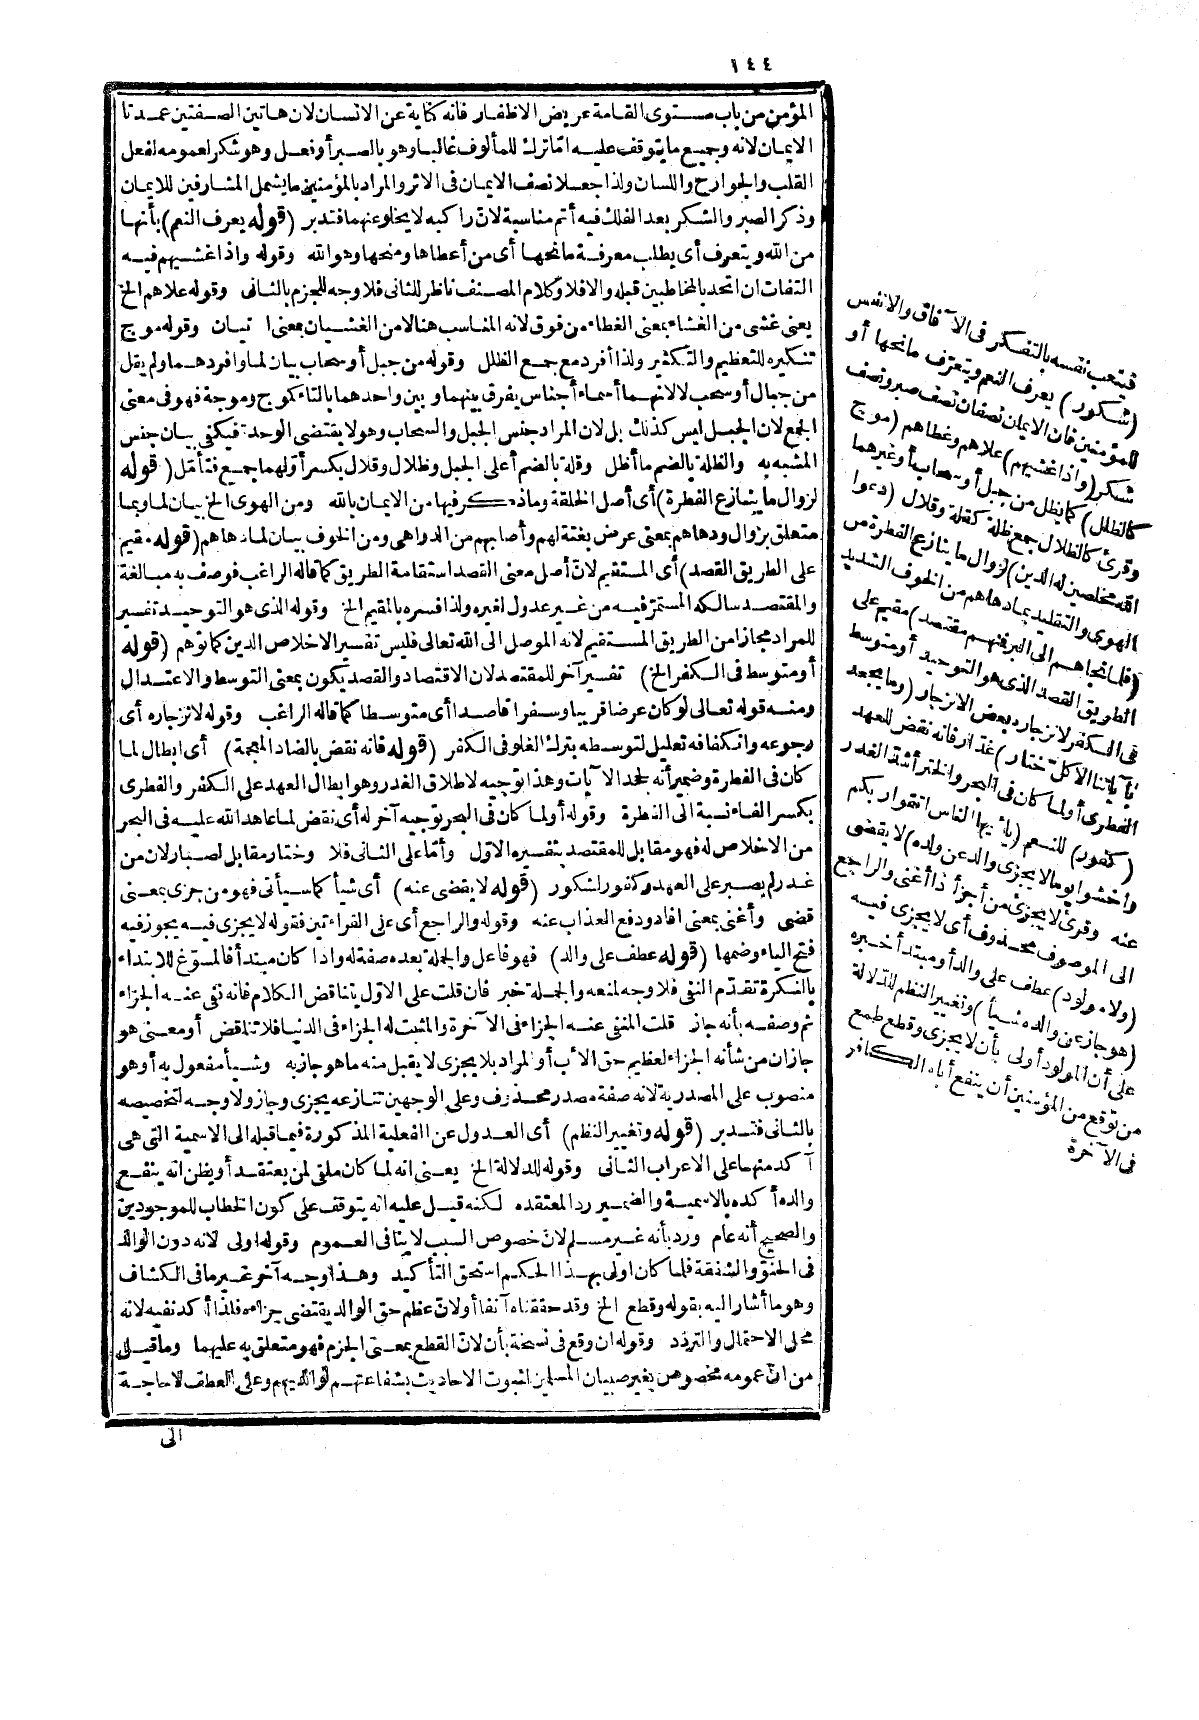 ١٤٤
المؤمن من باب مستوى القامة عريض الاظفار فانه كناية عن الانسان لان هاتين الصفتين عمدتا
الايمان لانه وجميع ما يتوقف عليه امّا ترك للمألوف غالبا وهو بالصبر أو فعل وهو شكر لعمومه لفعل
القلب والجوارح واللسان ولذا جعلا نصف الايمان فى الاثر والمراد بالمؤمنين ما يشمل المشارفين للايمان
وذكر الصبر والشكر بعد الفلك فيه أتم مناسبة لانّ راكبه لا يخلو عنهما فتدبر (قوله يعرف النعم) بأنها
من الله ويتعرف أى يطلب معرفة مانحها أى من أعطاها ومنحها وهو الله وقوله واذا غشيهم فيه
التفات ان اتحد بالمخاطبين قبله والا فلا وكلام المصنف ناظر للثانى فلا وجه للجزم بالثانى وقوله علاهم الخ
يعنى غشى من الغشاء بمعنى الغطاء من فوق لانه المناسب هنا لا من الغشيان بمعنى الاتيان وقوله موج
تنكيره للتعظيم والتكثير ولذا أفرد مع جمع الظلل وقوله من جبل أو سحاب بيان لما وافردهما ولم يقل
من جبال أو سحب لا لانهما أسماء أجناس يفرق بينهما وبين واحدهما بالتاء كموج وموجة فهو فى معنى
الجمع لان الجبل ليس كذلك بل لان المراد جنس الجبل والسحاب وهو لا يقتضى الوحدة فيكفى بيان جنس
المشبه به والظلة بالضم ما أظل وقلة بالضم أعلى الجبل وظلال وقلال بكسر أولهما جميع فتأمّل (قوله
لزوال ما ينازع الفطرة) أى أصل الخلقة وما ذكر فيها من الايمان بالله ومن الهوى الخ بيان لما وبما
متعلق بزوال ودهاهم بمعنى عرض بغتة لهم وأصابهم من الدواهى ومن الخوف بيان لما دهاهم (قوله مقيم
على الطريق القصد) أى المستقيم لانّ أصل معنى القصد استقامة الطريق كما قاله الراغب فوصف به مبالغة
والمقتصد سالكه المستمرّ فيه من غير عدول لغيره ولذا فسره بالمقيم الخ وقوله الذى هو التوحيد تفسير
للمراد مجازا من الطريق المستقيم لانه الموصل الى الله تعالى فليس تفسير الاخلاص الدين كما توهم (قوله
أو متوسط فى الكفر الخ) تفسير آخر للمقتصد لان الاقتصاد والقصد يكون بمعنى التوسط والاعتدال
ومنه قوله تعالى لو كان عرضا قريبا وسفرا قاصدا أى متوسطا كما قاله الراغب وقوله لانزجاره أى
رجوعه وانكفافه تعليل لتوسطه بترك الغلو فى الكفر (قوله فانه نقض بالضاد المعجمة) أى ابطال لما
كان فى الفطرة وضمير أنه لجحد الآيات وهذا توجيه لاطلاق الغدر وهو ابطال العهد على الكفر والفطرى
بكسر الفاء نسبة الى الفطرة وقوله أو لما كان فى البحر توجيه آخر له أى نقض لما عاهد الله عليه فى البحر
من الاخلاص له فهو مقابل للمقتصد بتفسيره الاوّل وأمّا على الثانى فلا وختار مقابل لصبار لان من
غدر لم يصبر على العهد وكفور لشكور (قوله لا يقضى عنه) أى شيأ كما سيأتى فهو من جزى بمعنى
قضى وأغنى بمعنى افاد ودفع العذاب عنه وقوله والراجع أى على القراءتين فقوله لا يجزى فيه يجوز فيه
فتح الياء وضمها (قوله عطف على والد) فهو فاعل والجملة بعده صفة له واذا كان مبتدأ فالمسوّغ للابتداء
بالنكرة تقدّم النفى فلا وجه لمنعه والجملة خبر فان قلت على الاوّل يتناقض الكلام فانه نفى عنه الجزاء
ثم وصفه بأنه جاز قلت المنفى عنه الجزاء فى الآخرة والمثبت له الجزاء فى الدنيا فلا تناقض أو معنى هو
جاز ان من شأنه الجزاء لعظيم حق الأب أو المراد بلا يجزى لا يقبل منه ما هو جاز به وشيأ مفعول به أو هو
منصوب على المصدرية لانه صفة مصدر محذوف وعلى الوجهين تنازعه يجزى وجاز ولا وجه لتخصيصه
بالثانى فتدبر (قوله وتغيير النظم) أى العدول عن الفعلية المذكورة فيما قبله الى الاسمية التى هى
آكد منها على الاعراب الثانى وقوله للدلالة الخ يعنى انه لما كان ملقى لمن يعتقد أو يظن انه ينفع
والده أكده بالاسمية والضمير رد المعتقده لكنه قيل عليه انه يتوقف على كون الخطاب للموجودين
والصحيح أنه عام ورد بأنه غير مسلم لانّ خصوص السبب لا ينافى العموم وقوله اولى لانه دون الوالد
فى الحنوّ والشفقة فلما كان اولى بهذا الحكم استحق التأكيد وهذا وجه آخر غير ما فى الكشاف
وهو ما أشار اليه بقوله وقطع الخ وقد حققناه آنفا أو لان عظم حق الوالد يقتضى جزاءه فلذا أكد نفيه لانه
محل الاحتمال والتردّد وقوله ان وقع فى نسخة بأن لانّ القطع بمعنى الجزم فهو متعلق به عليهما وما قيل
من انّ عمومه مخصوص بغير صبيان المسلمين لثبوت الاحاديث بشفاعتهم لوالديهم وعلى العطف لا حاجة
الى
فيتعب نفسه بالتفكر فى الآفاق والانفس
(شكور) يعرف النعم ويتعرّف مانحها أو
للمؤمنين فان الايمان نصفان نصف صبر ونصف
شكر (واذا غشيهم) علاهم وغطاهم (موج
كالظلل) كما يظل من جبل أو سحاب أو غيرهما
وقرئ كالظلال جمع ظلة كقلة وقلال (دعوا
الله مخلصين له الدين) لزوال ما ينازع الفطرة من
الهوى والتقليد بما دهاهم من الخوف الشديد
(فلما نجاهم الى البر فمنهم مقتصد) مقيم على
الطريق القصد الذى هو التوحيد أو متوسط
فى الكفر لانزجاره بعض الانزجار (وما يجحد
بآياتنا الا كل ختار) غدّار فانه نقض للعهد
الفطرى أو لما كان فى البحر والختر أشدّ الغدر
(كفور) للنعم (يا أيها الناس اتقوا ربكم
واخشوا يوما لا يجزى والد عن ولده) لا يقضى
عنه وقرئ لا يجزئ من أجزأ اذا أغنى والراجع
الى الموصوف محذوف أى لا يجزى فيه
(ولا مولود) عطف على والد أو مبتدأ خبره
(هو جاز عن والده شيأ) وتغيير النظم للدلالة
على أن المولود أولى بأن لا يجزى وقطع طمع
من توقع من المؤمنين أن ينفع أباه الكافر
فى الآخرة